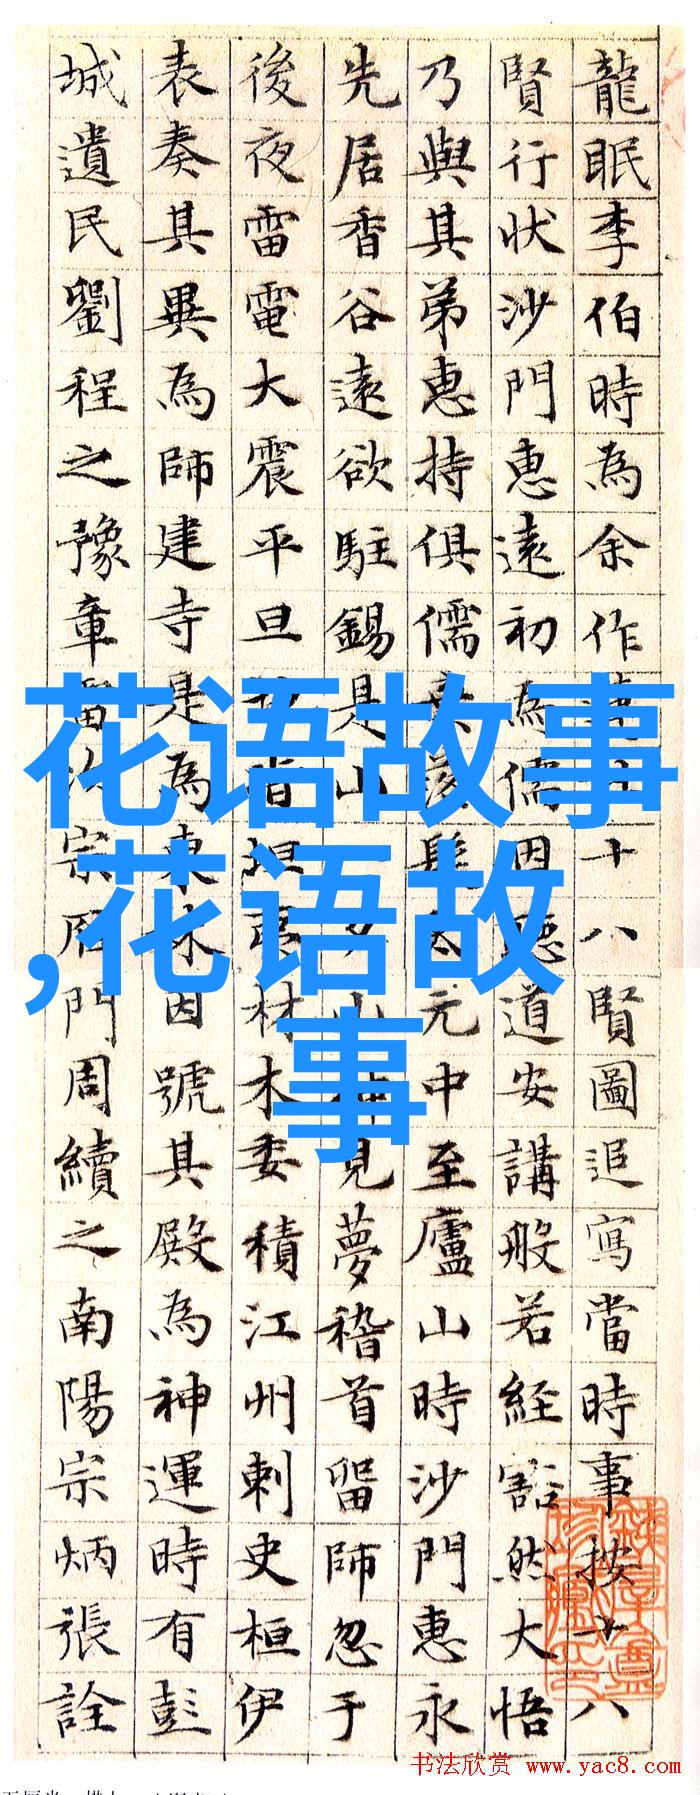 龍眠李伯時為余作十八賢圖追寫當時事按十八
賢行狀沙門惠遠初為儒因聽道安講般若経豁然大悟
乃與其弟惠持俱儒髮元中至廬山時沙門惠永
先居香谷遠欲駐錫是山山神見夢稽首留師忽于
後夜雷電大震平旦材木委積江州刺史桓伊
表奏其異為師建寺是為東林因號其殿為神運時有彭
城遺民劉程之豫章雷次宗鴈門周續之南陽宗炳張詮
花语故事
,花语故
事
书法欣赏 www.yac8.com